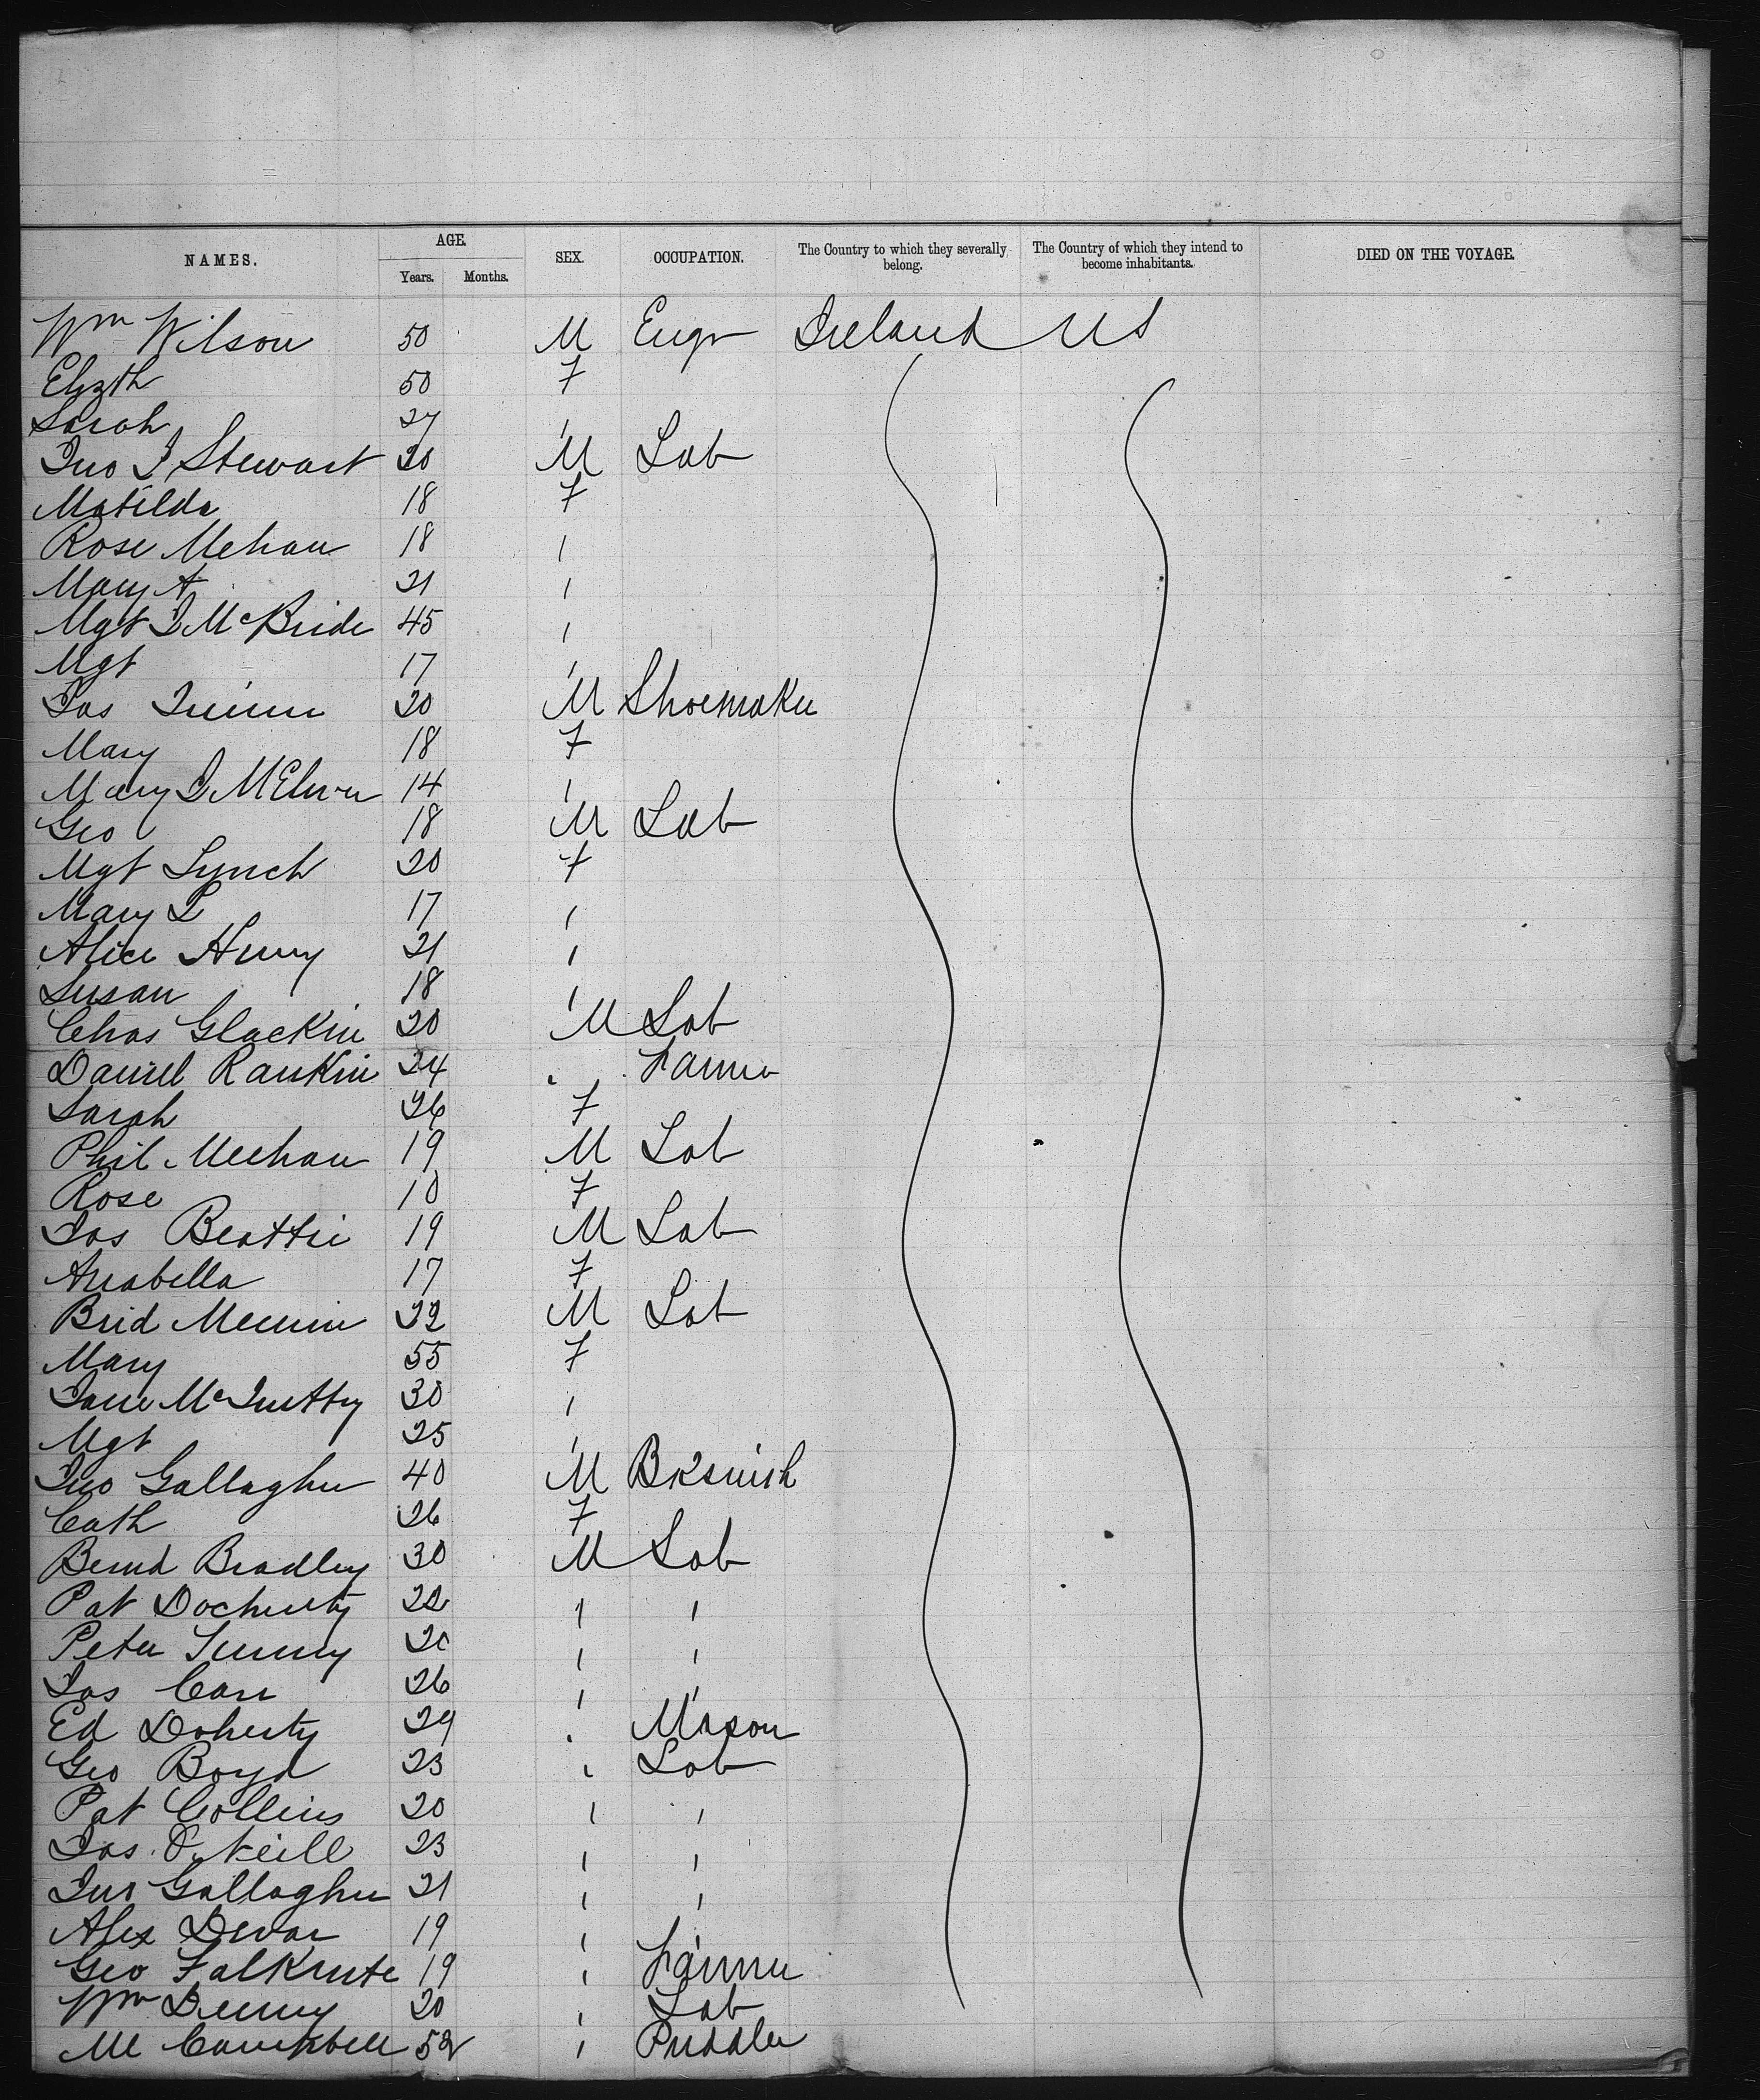 NAMES. AGE. Years. Months. SEX. OCCUPATION. The Country to which they severally belong. The Country of which they intend to become inhabitants. DIED ON THE VOYAGE.
Wm Wilson 50 M Engr Ireland US
Elizth 50 F
Sarah 27 "
Jno J Stewart 20 M Lab
Matilda 18 F
Rose Mehan 18 "
Mary A 21 "
Mgt J McBride 45 "
Mgt 17 "
Jas Quinn 20 M Shoemaker
Mary 18 F
Mary J 14 "
Geo 18 M Lab
Mgt Lynch 20 F
Mary L 17 "
Alice Henry 21 "
Susan 18 "
Chas Glackin 20 M Lab
Daniel Rankin 24 " Farmer
Sarah 26 F
Phil Meehan 19 M Lab
Rose 10 F
Jas Beattie 19 M Lab
Arabella 17 F
Brid 22 M Lab
Mary 55 F
Jane 30 "
Mgt 25 "
Jno Gallagher 40 M Bksmith
Cath 26 F
Bernd Bradley 30 M Lab
Pat Docherty 22 " "
Peter 20 " "
Jas Carr 26 " "
Ed Doherty 29 " Mason
Geo Boyd 23 " Lab
Pat Collins 20 " "
Jas O'Neill 23 " "
Jno Gallagher 21 " "
Alex Devar 19 "
Geo 19 " Farmer
Wm Denny 20 " Lab
Ml Campbell 52 " Puddler